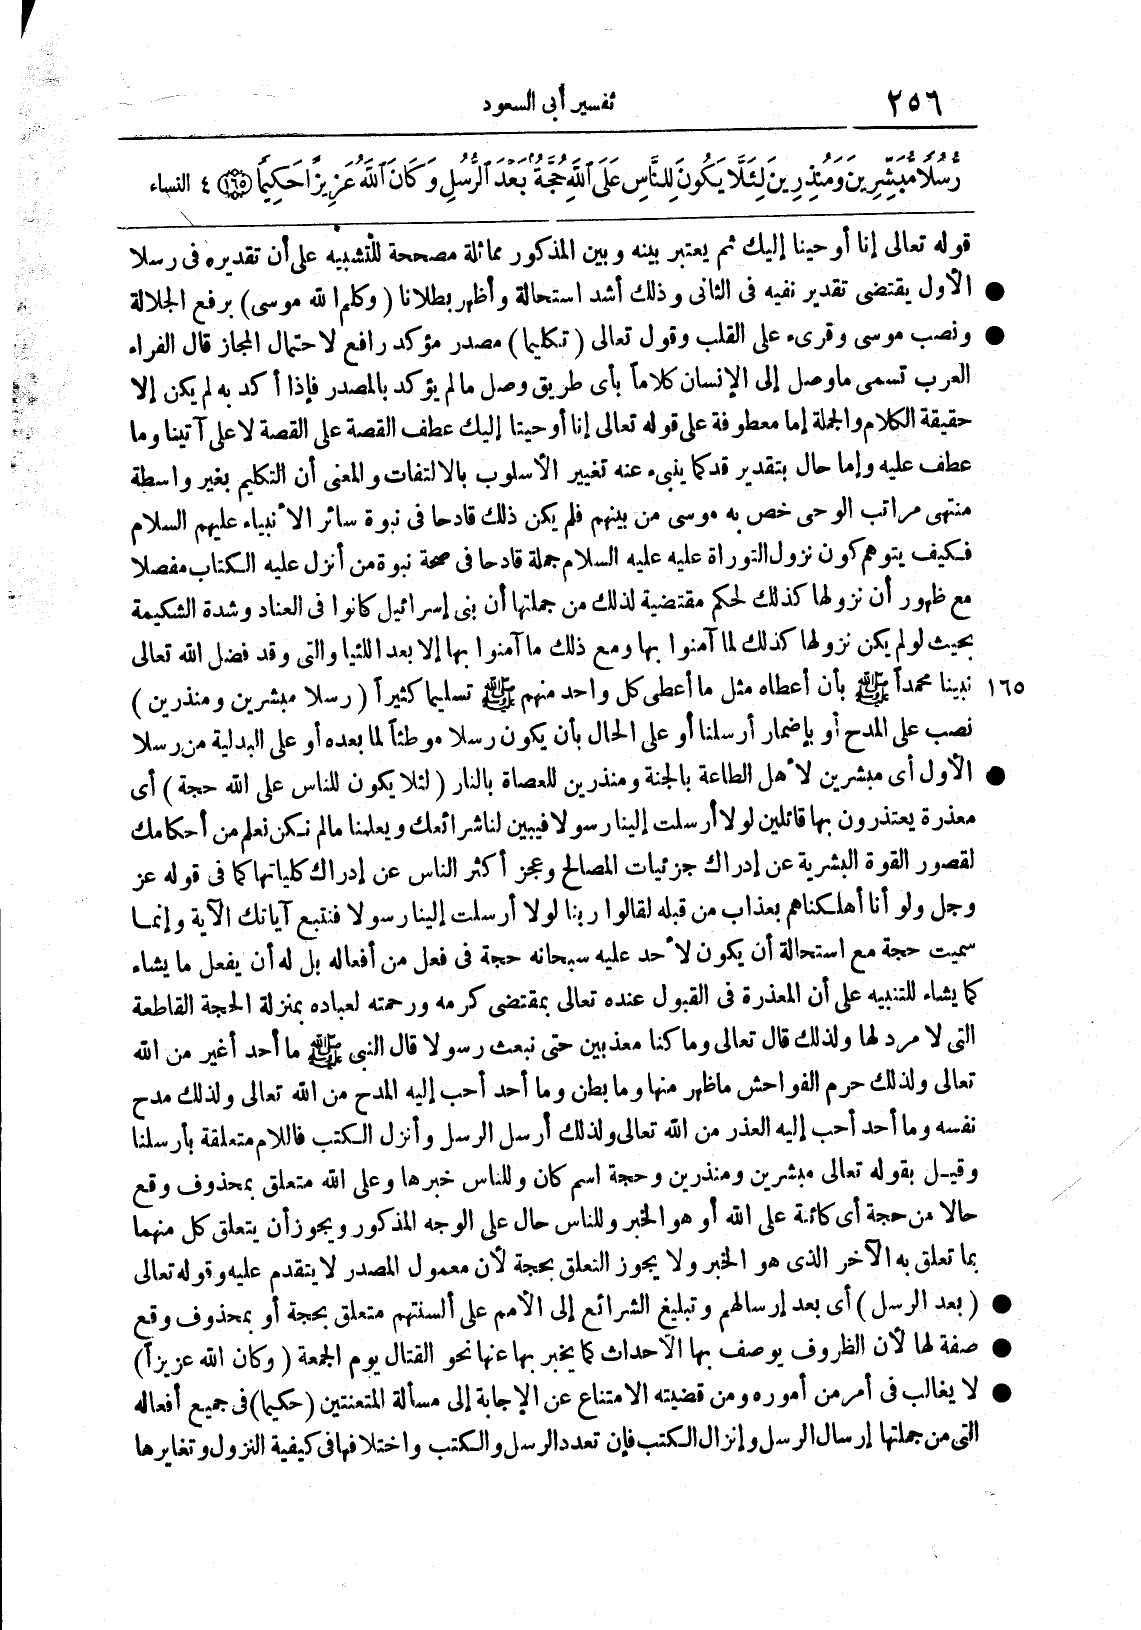 ٢٥٦ تفسير أبى السعود
رُسُلًا مُبَشِّرِينَ وَمُنْذِرِينَ لِئَلَّا يَكُونَ لِلنَّاسِ عَلَى اللَّهِ حُجَّةٌ بَعْدَ الرُّسُلِ وَكَانَ اللَّهُ عَزِيزًا حَكِيمًا ١٦٥ ٤ النساء
قوله تعالى إنا أوحينا إليك ثم يعتبر بينه وبين المذكور مماثلة مصححة للتشبيه على أن تقديره فى رسلا
الأول يقتضى تقدير نفيه فى الثانى وذلك أشد استحالة وأظهر بطلانا ( وكلم الله موسى ) برفع الجلالة ●
ونصب موسى وقرىء على القلب وقول تعالى ( تكليما ) مصدر مؤكد رافع لاحتمال المجاز قال الفراء ●
العرب تسمى ماوصل إلى الإنسان كلاماً بأى طريق وصل مالم يؤكد بالمصدر فإذا أكد به لم يكن إلا
حقيقة الكلام والجملة إما معطوفة على قوله تعالى إنا أوحيتا إليك عطف القصة على القصة لا على آتينا وما
عطف عليه وإما حال بتقدير قد كما ينبىء عنه تغيير الأسلوب بالالتفات والمعنى أن التكليم بغير واسطة
منتهى مراتب الوحى خص به موسى من بينهم فلم يكن ذلك قادحا فى نبوة سائر الأنبياء عليهم السلام
فكيف يتوهم كون نزول التوراة عليه عليه السلام جملة قادحا فى صحة نبوة من أنزل عليه الكتاب مفصلا
مع ظهور أن نزولها كذلك لحكم مقتضية لذلك من جملتها أن بنى إسرائيل كانوا فى العناد وشدة الشكيمة
بحيث لو لم يكن نزولها كذلك لما آمنوا بها ومع ذلك ما آمنوا بها إلا بعد اللتيا والتى وقد فضل الله تعالى
١٦٥ نبينا محمداً ﷺ بأن أعطاه مثل ما أعطى كل واحد منهم ﷺ تسليما كثيراً ( رسلا مبشرين ومنذرين )
نصب على المدح أو بإضمار أرسلنا أو على الحال بأن يكون رسلا موطئاً لما بعده أو على البدلية من رسلا
الأول أى مبشرين لأهل الطاعة بالجنة ومنذرين للعصاة بالنار ( لئلا يكون للناس على الله حجة ) أى ●
معذرة يعتذرون بها قائلين لولا أرسلت إلينا رسولا فيبين لنا شرائعك ويعلمنا مالم نكن نعلم من أحكامك
لقصور القوة البشرية عن إدراك جزئيات المصالح وعجز أكثر الناس عن إدراك كلياتها كما فى قوله عز
وجل ولو أنا أهلكناهم بعذاب من قبله لقالوا ربنا لولا أرسلت إلينا رسولا فنتبع آياتك الآية وإنما
سميت حجة مع استحالة أن يكون لأحد عليه سبحانه حجة فى فعل من أفعاله بل له أن يفعل ما يشاء
كما يشاء للتنبيه على أن المعذرة فى القبول عنده تعالى بمقتضى كرمه ورحمته لعباده بمنزلة الحجة القاطعة
التى لا مرد لها ولذلك قال تعالى وما كنا معذبين حتى نبعث رسولا قال النبى ﷺ ما أحد أغير من الله
تعالى ولذلك حرم الفواحش ماظهر منها وما بطن وما أحد أحب إليه المدح من الله تعالى ولذلك مدح
نفسه وما أحد أحب إليه العذر من الله تعالى ولذلك أرسل الرسل وأنزل الكتب فاللام متعلقة بأرسلنا
وقيل بقوله تعالى مبشرين ومنذرين وحجة اسم كان وللناس خبرها وعلى الله متعلق بمحذوف وقع
حالا من حجة أى كائنة على الله أو هو الخبر وللناس حال على الوجه المذكور ويجوز أن يتعلق كل منهما
بما تعلق به الآخر الذى هو الخبر ولا يجوز التعلق بحجة لأن معمول المصدر لا يتقدم عليه وقوله تعالى
( بعد الرسل ) أى بعد إرسالهم وتبليغ الشرائع إلى الأمم على ألسنتهم متعلق بحجة أو بمحذوف وقع ●
صفة لها لأن الظروف يوصف بها الأحداث كما يخبر بها عنها نحو القتال يوم الجمعة ( وكان الله عزيزاً ) ●
لا يغالب فى أمر من أموره ومن قضيته الامتناع عن الإجابة إلى مسألة المتعنتين ( حكيما ) فى جميع أفعاله ●
التى من جملتها إرسال الرسل وإنزال الكتب فإن تعدد الرسل والكتب واختلافها فى كيفية النزول وتغايرها